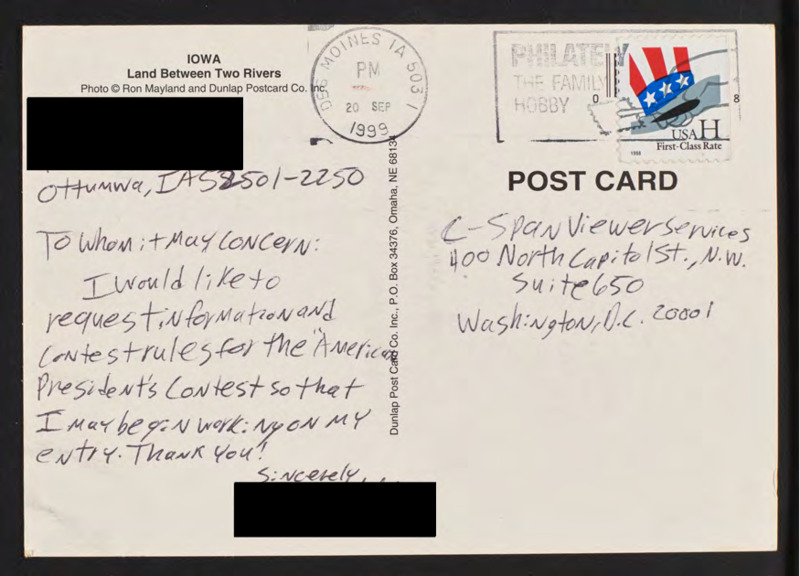 IOWA
Land Between Two Rivers
Photo © Ron Mayland and Dunlap Postcard Co. Inc.
Ottumwa, IA 52501-2250
To Whom it May Concern:
I would like to
request information and
contest rules for the "American
President's Contest so that
I may begin working on my
entry. Thank you!
Sincerely,
Dunlap Post Card Co. Inc., P.O. Box 34376, Omaha, NE 68134
DES MOINES IA 503
PM
20 SEP
1999
PHILATELY
THE FAMILY
HOBBY
USA H
First-Class Rate
1998
POST CARD
C-Span Viewer Services
400 North Capitol St., N.W.
Suite 650
Washington, D.C. 20001